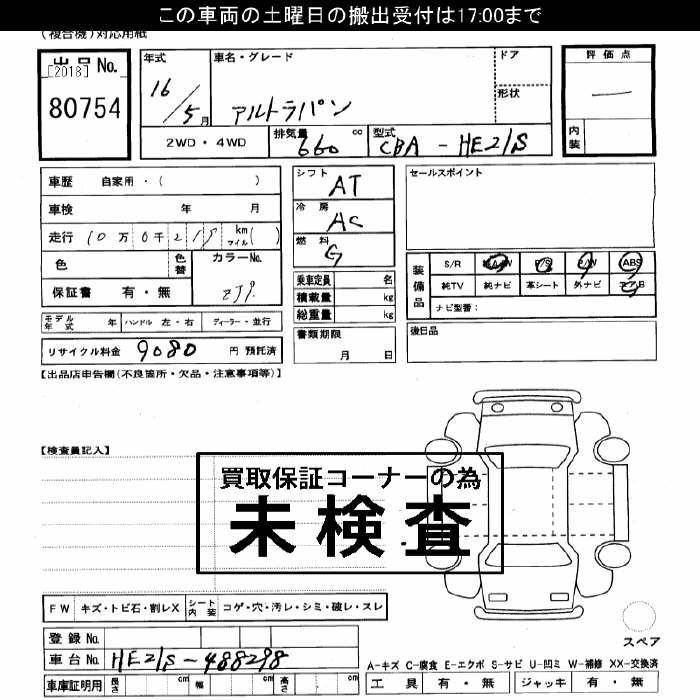 この車両の土曜日の搬出受付は17:00まで
(複合機)対応用紙
出品No.
[2018]
80754
年式
16/5月
車名・グレード
アルトラパン
ドア
形状
評価点
―
内装
2WD・4WD
排気量 660 cc
型式 CBA - HE21S
車歴 自家用・( )
車検 年 月
走行 10万0千21 km マイル( )
色
色替
カラーNo.
ZJ9.
保証書 有・無
シフト AT
冷房 AC
燃料 G
乗車定員 名
積載量 kg
総重量 kg
セールスポイント
装備品
S/R 純AW P/S P/W ABS
純TV 純ナビ 革シート 外ナビ エアB
ナビ型番:
モデル年式 年 ハンドル 左・右 ディーラー・並行
リサイクル料金 9080 円 預託済
書類期限
月 日
後日品
【出品店申告欄(不良箇所・欠品・注意事項等)】
【検査員記入】
買取保証コーナーの為
未検査
FW キズ・トビ石・割レX シート内装 コゲ・穴・汚レ・シミ・破レ・スレ
スペア
登録No.
車台No. HE21S-488298
A-キズ C-腐食 E-エクボ S-サビ U-凹ミ W-補修 XX-交換済
車庫証明用 長さ cm 幅 cm 高さ cm
工具 有・無 ジャッキ 有・無